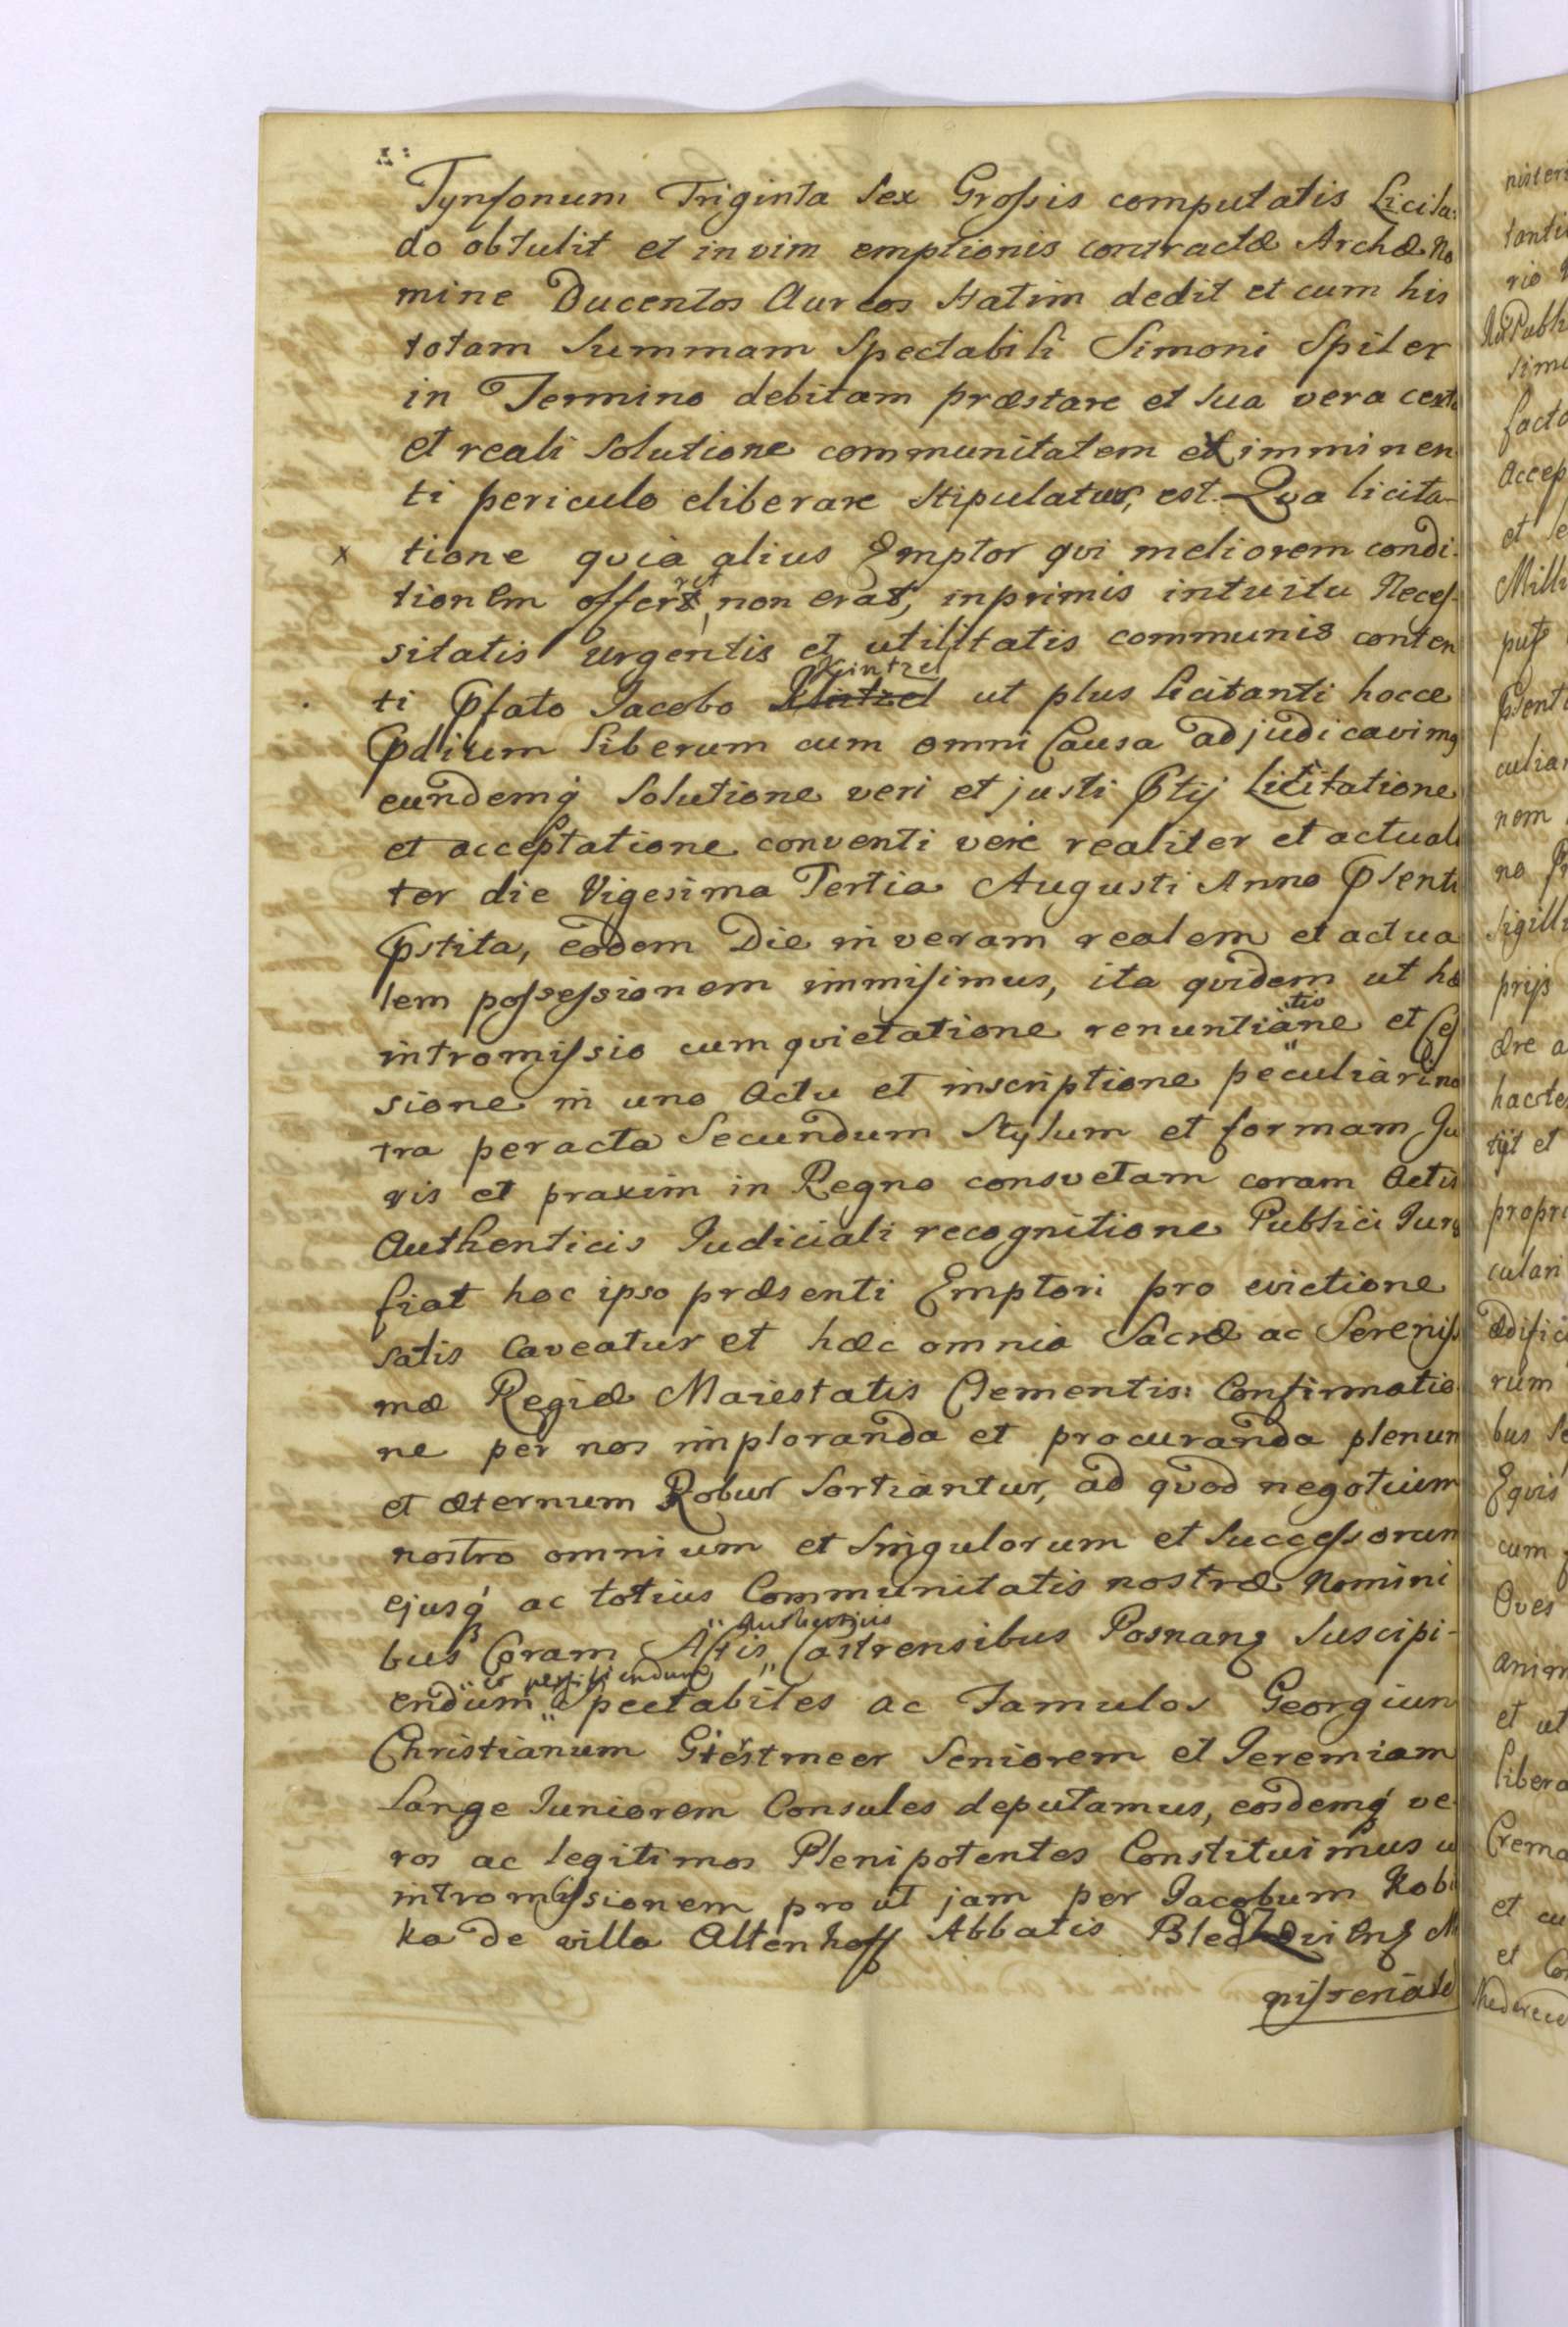 Tynfonum Triginta Sex Grossis computatis Licita:
do obtulit et in vim emptionis contractæ Archæ No
mine Ducentos Aureos statim dedit et cum his
totam Summam Spectabili Simoni Spiler
in Termino debitam præstare et sua vera certa
et reali Solutione communitatem ex imminen
ti periculo eliberare stipulatus, est. Qva licita-
x tione qvia alius Emptor qvi meliorem condi-
tionem offerret non erat, inprimis intuitu Neces-
sitatis urgentis et utilitatis communis conten
ti pfato Jacobo Kintzel ut plus licitanti hocce
Pdium Liberum cum omni Causa adjudicavimq
eundemq Solutione veri et justi Ptij Licitatione
et acceptatione conventi vere realiter et actuali
ter die Vigesima Tertia Augusti Anno Psenti
Pstita, eodem Die in veram realem et actua
lem possessionem immisimus, ita qvidem ut hæ
intromissio cum qvietatione renuntiatione et Ces
sione in uno Actu et inscriptione peculiarino
tra peracta Secundum Stylum et formam Ju
ris et praxim in Regno consvetam coram Actis
Authenticis Judiciali recognitione Publici Juris
fiat hoc ipso præsenti Emptori pro evictione
satis caveatur et hæc omnia Sacræ ac Sereniss
mæ Regiæ Maiestatis Clementis: Confirmatio
ne per nos imploranda et procuranda plenum
et æternum Robur Sortiantur, ad qvod negotium
nostro omnium et Singulorum et Successorum
ejusq ac totius Communitatis nostræ Nomini
bus Coram Actis Authenticis Castrensibus Posnanq Suscipi-
endum et perficiendum Spectabiles ac Famulos Georgium
Christianum Gerstmeer Seniorem et Jeremiam
Lange Juniorem Consules deputamus, eosdemq ve
ros ac legitimos Plenipotentes Constituimus u
intromissionem pro ut jam per Jacobum Kobi
ka de villa Altenhoff Abbatis Bledzeviensis M
nisteriale

nister
tantu
rio
Publi
sima
facto
accep
et se
Mill
puss
Psenti
culiar
nem
no
Sigill
prijs
dre a
hacte
tijt et
propri
culari
ædific
rum
bus Se
Eqvis
cum
Oves
anim
et ut
libera
Crema
et cu
et Co